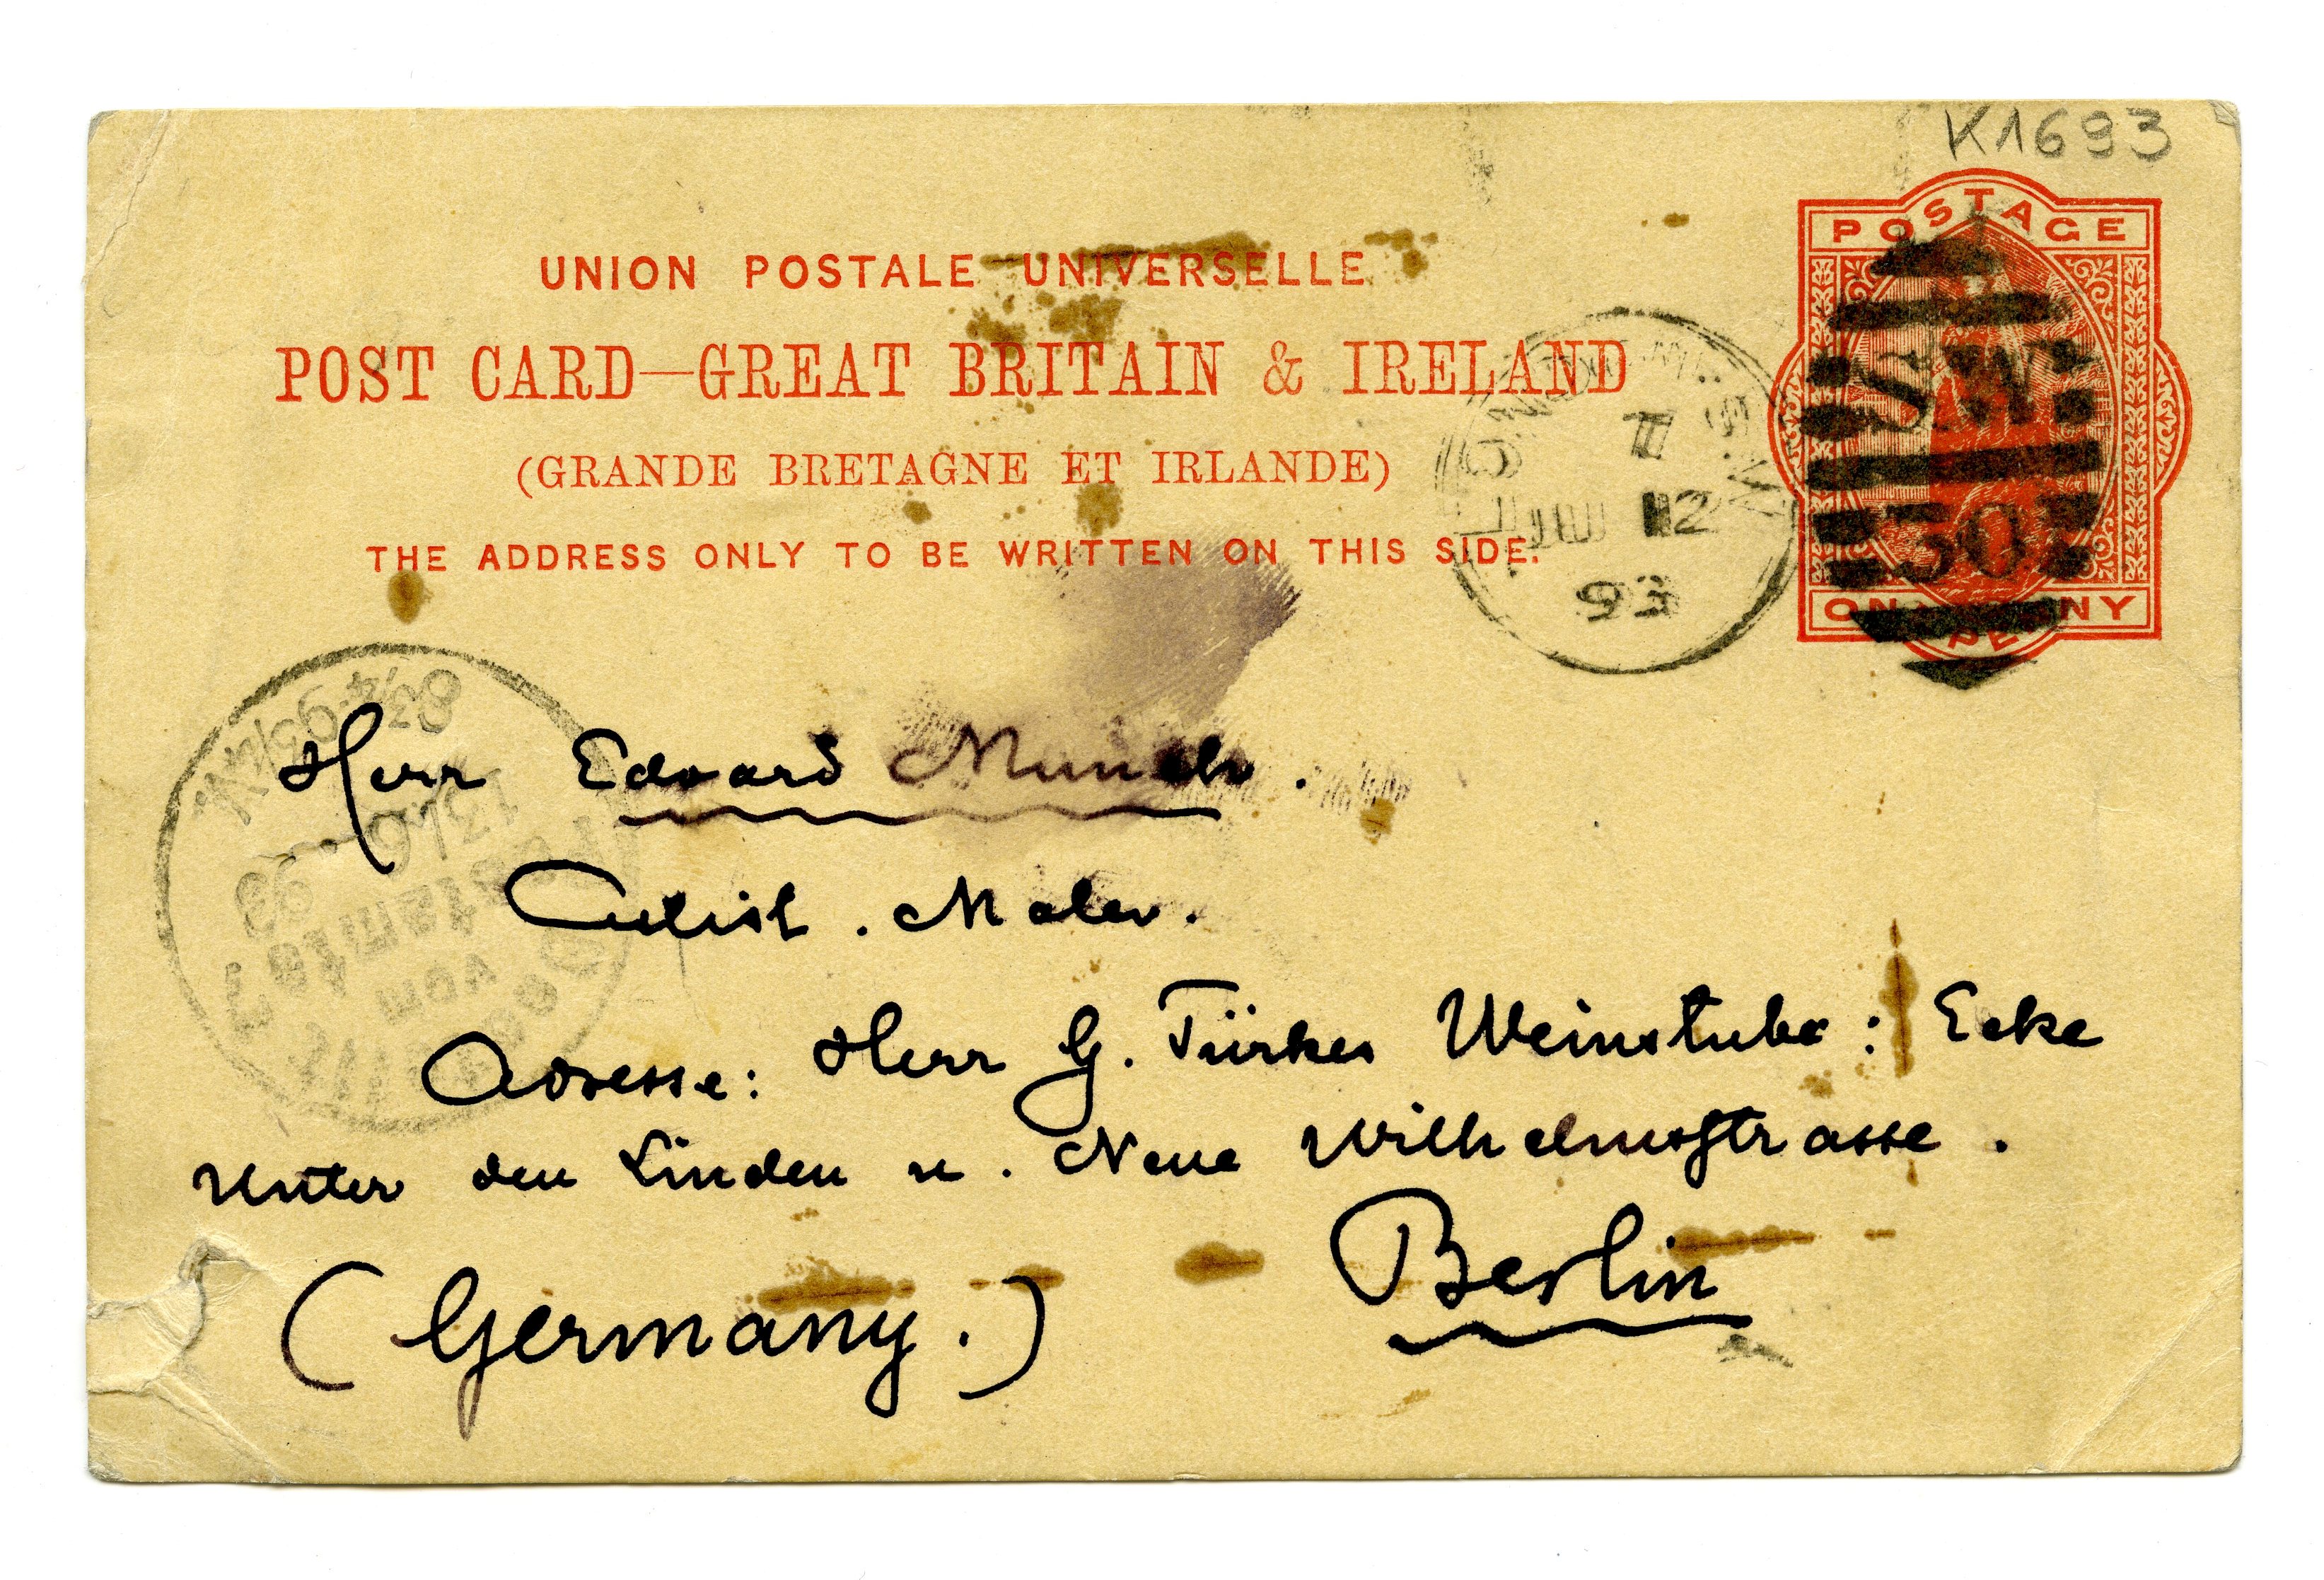 K1693
POSTAGE
ONE PENNY
SW
30
UNION POSTALE UNIVERSELLE
POST CARD—GREAT BRITAIN & IRELAND
(GRANDE BRETAGNE ET IRLANDE)
THE ADDRESS ONLY TO BE WRITTEN ON THIS SIDE.
LONDON S.W.
Z
JU 12
93
Herr Edvard Munch.
Artist. Maler.
Adresse: Herr G. Türkes Weinstube: Ecke
Unter den Linden u. Neue Wilhelmsstrasse.
(Germany.) Berlin
Bestellt
vom
Postamte 7
93
13/6
8¾-9¾ N.